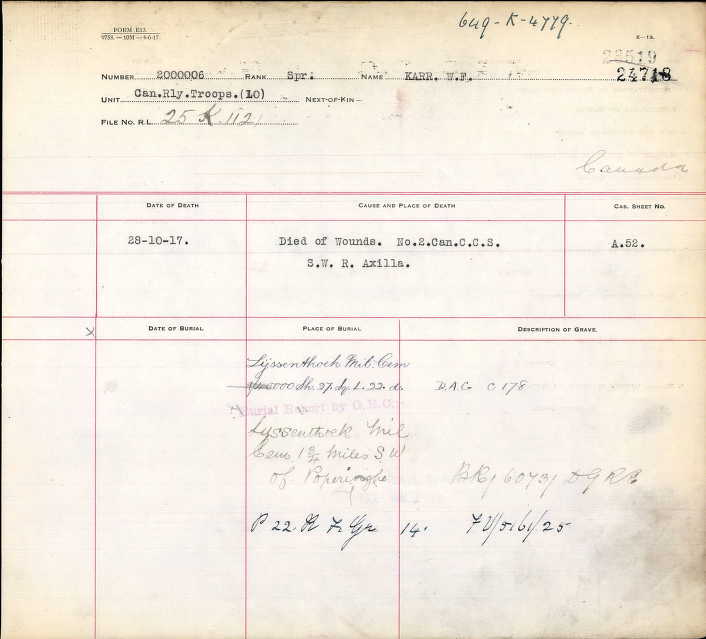 FORM E13.
649-K-4779.
E-13.
22519
24718
NUMBER 2000006 RANK Spr. NAME KARR. W.F.
UNIT Can.Rly.Troops.(10) NEXT-OF-KIN—
FILE NO. R.L. 25 K 112
Canada
DATE OF DEATH CAUSE AND PLACE OF DEATH CAS. SHEET NO.
28-10-17. Died of Wounds. No.2.Can.C.C.S. A.52.
S.W. R. Axilla.
X DATE OF BURIAL PLACE OF BURIAL DESCRIPTION OF GRAVE.
Lijssenthoek Mil: Cem
Sh. 27. L. 22. d. D.A.G. C 178
Burial Report by G.H.Q.
Lyssenthoek Mil
Cem 1 3/4 Miles S W
of Poperinghe BR/6073/ DGR&E
P 22. R 7. Gr 14.